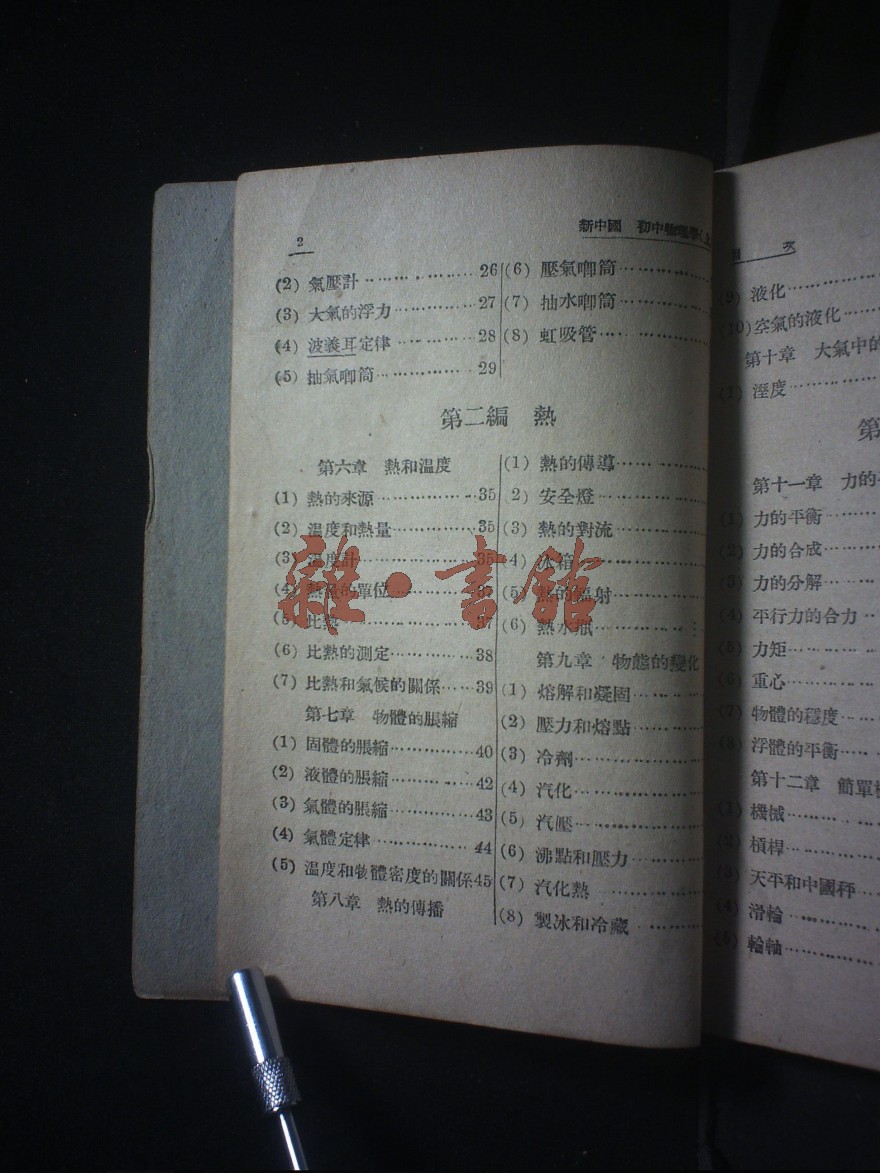 2
新中國 初中物理學(上
(2) 氣壓計 26
(3) 大氣的浮力 27
(4) 波義耳定律 28
(5) 抽氣唧筒 29
(6) 壓氣唧筒
(7) 抽水唧筒
(8) 虹吸管
第二編 熱
第六章 熱和溫度
(1) 熱的來源 35
(2) 溫度和熱量 35
(3) 溫度計 35
(4) 熱量的單位 37
(5) 比熱 37
(6) 比熱的測定 38
(7) 比熱和氣候的關係 39
第七章 物體的脹縮
(1) 固體的脹縮 40
(2) 液體的脹縮 42
(3) 氣體的脹縮 43
(4) 氣體定律 44
(5) 溫度和物體密度的關係 45
第八章 熱的傳播
(1) 熱的傳導
2) 安全燈
(3) 熱的對流
(4) 冰箱
(5) 熱的輻射
(6) 熱水瓶
第九章 物態的變化
(1) 熔解和凝固
(2) 壓力和熔點
(3) 冷劑
(4) 汽化
(5) 汽壓
(6) 沸點和壓力
(7) 汽化熱
(8) 製冰和冷藏
雜·書館
目 次
(9) 液化
(10) 空氣的液化
第十章 大氣中的
(1) 溼度
第
第十一章 力的平
(1) 力的平衡
(2) 力的合成
(3) 力的分解
(4) 平行力的合力
(5) 力矩
(6) 重心
(7) 物體的穩度
(8) 浮體的平衡
第十二章 簡單機
(1) 機械
(2) 槓桿
(3) 天平和中國秤
(4) 滑輪
(5) 輪軸